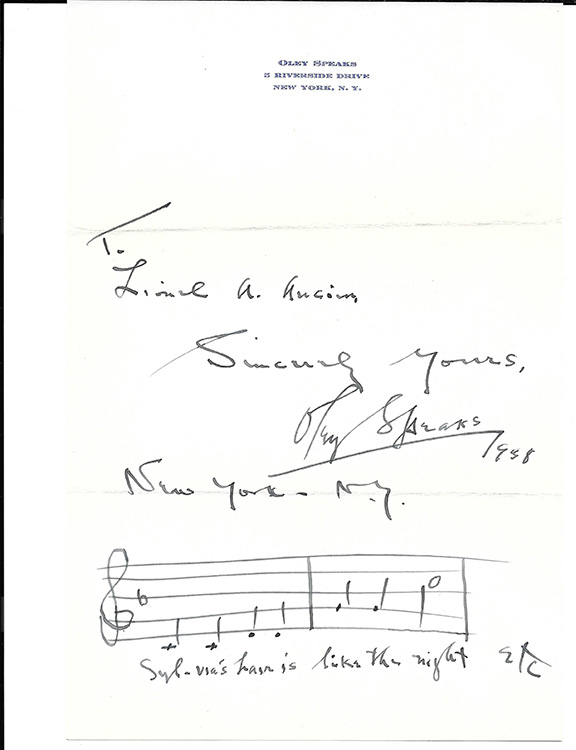 OLEY SPEAKS
5 RIVERSIDE DRIVE
NEW YORK, N. Y.
To
Lionel A.
Sincerely Yours,
Oley Speaks
1938
New York - N.Y.
Syl-via's hair is like the night etc